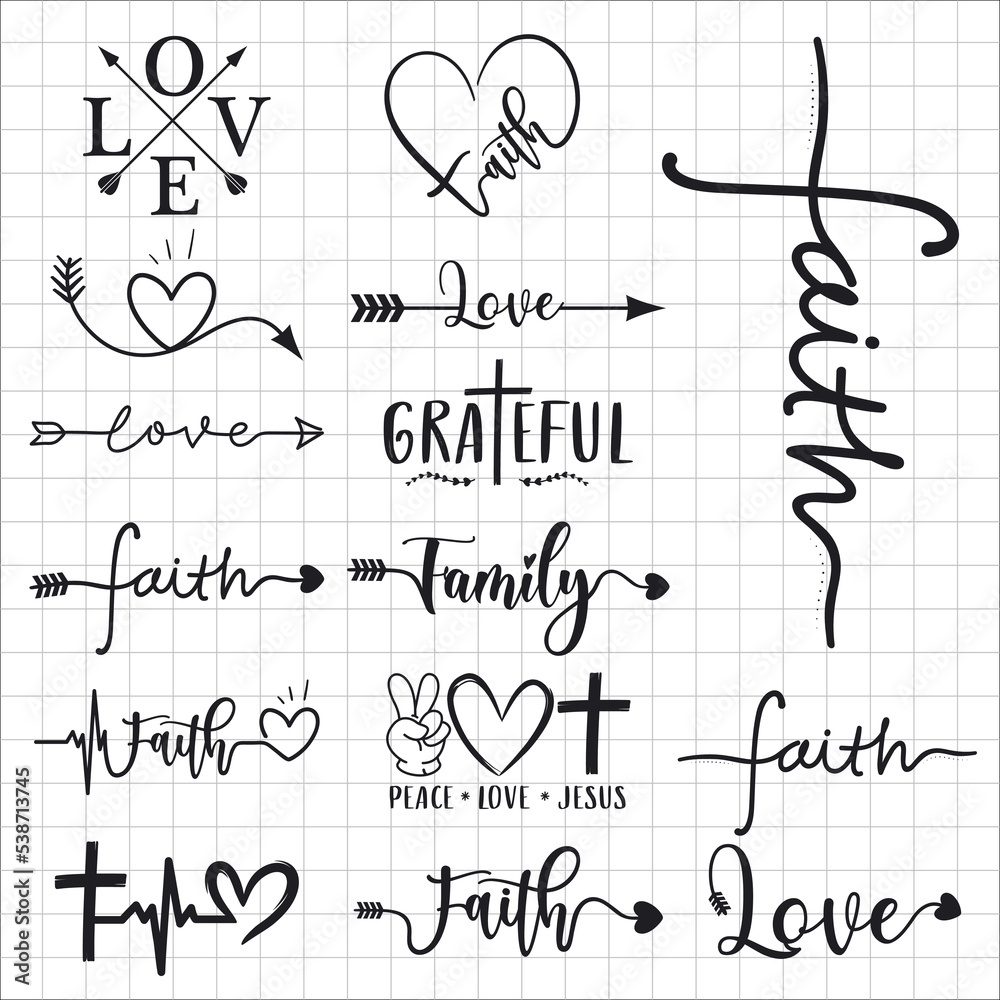 LOVE
faith
faith
Love
love
GRATEFUL
faith
Family
Faith
PEACE * LOVE * JESUS
faith
Faith
Love
Adobe Stock | #538713745